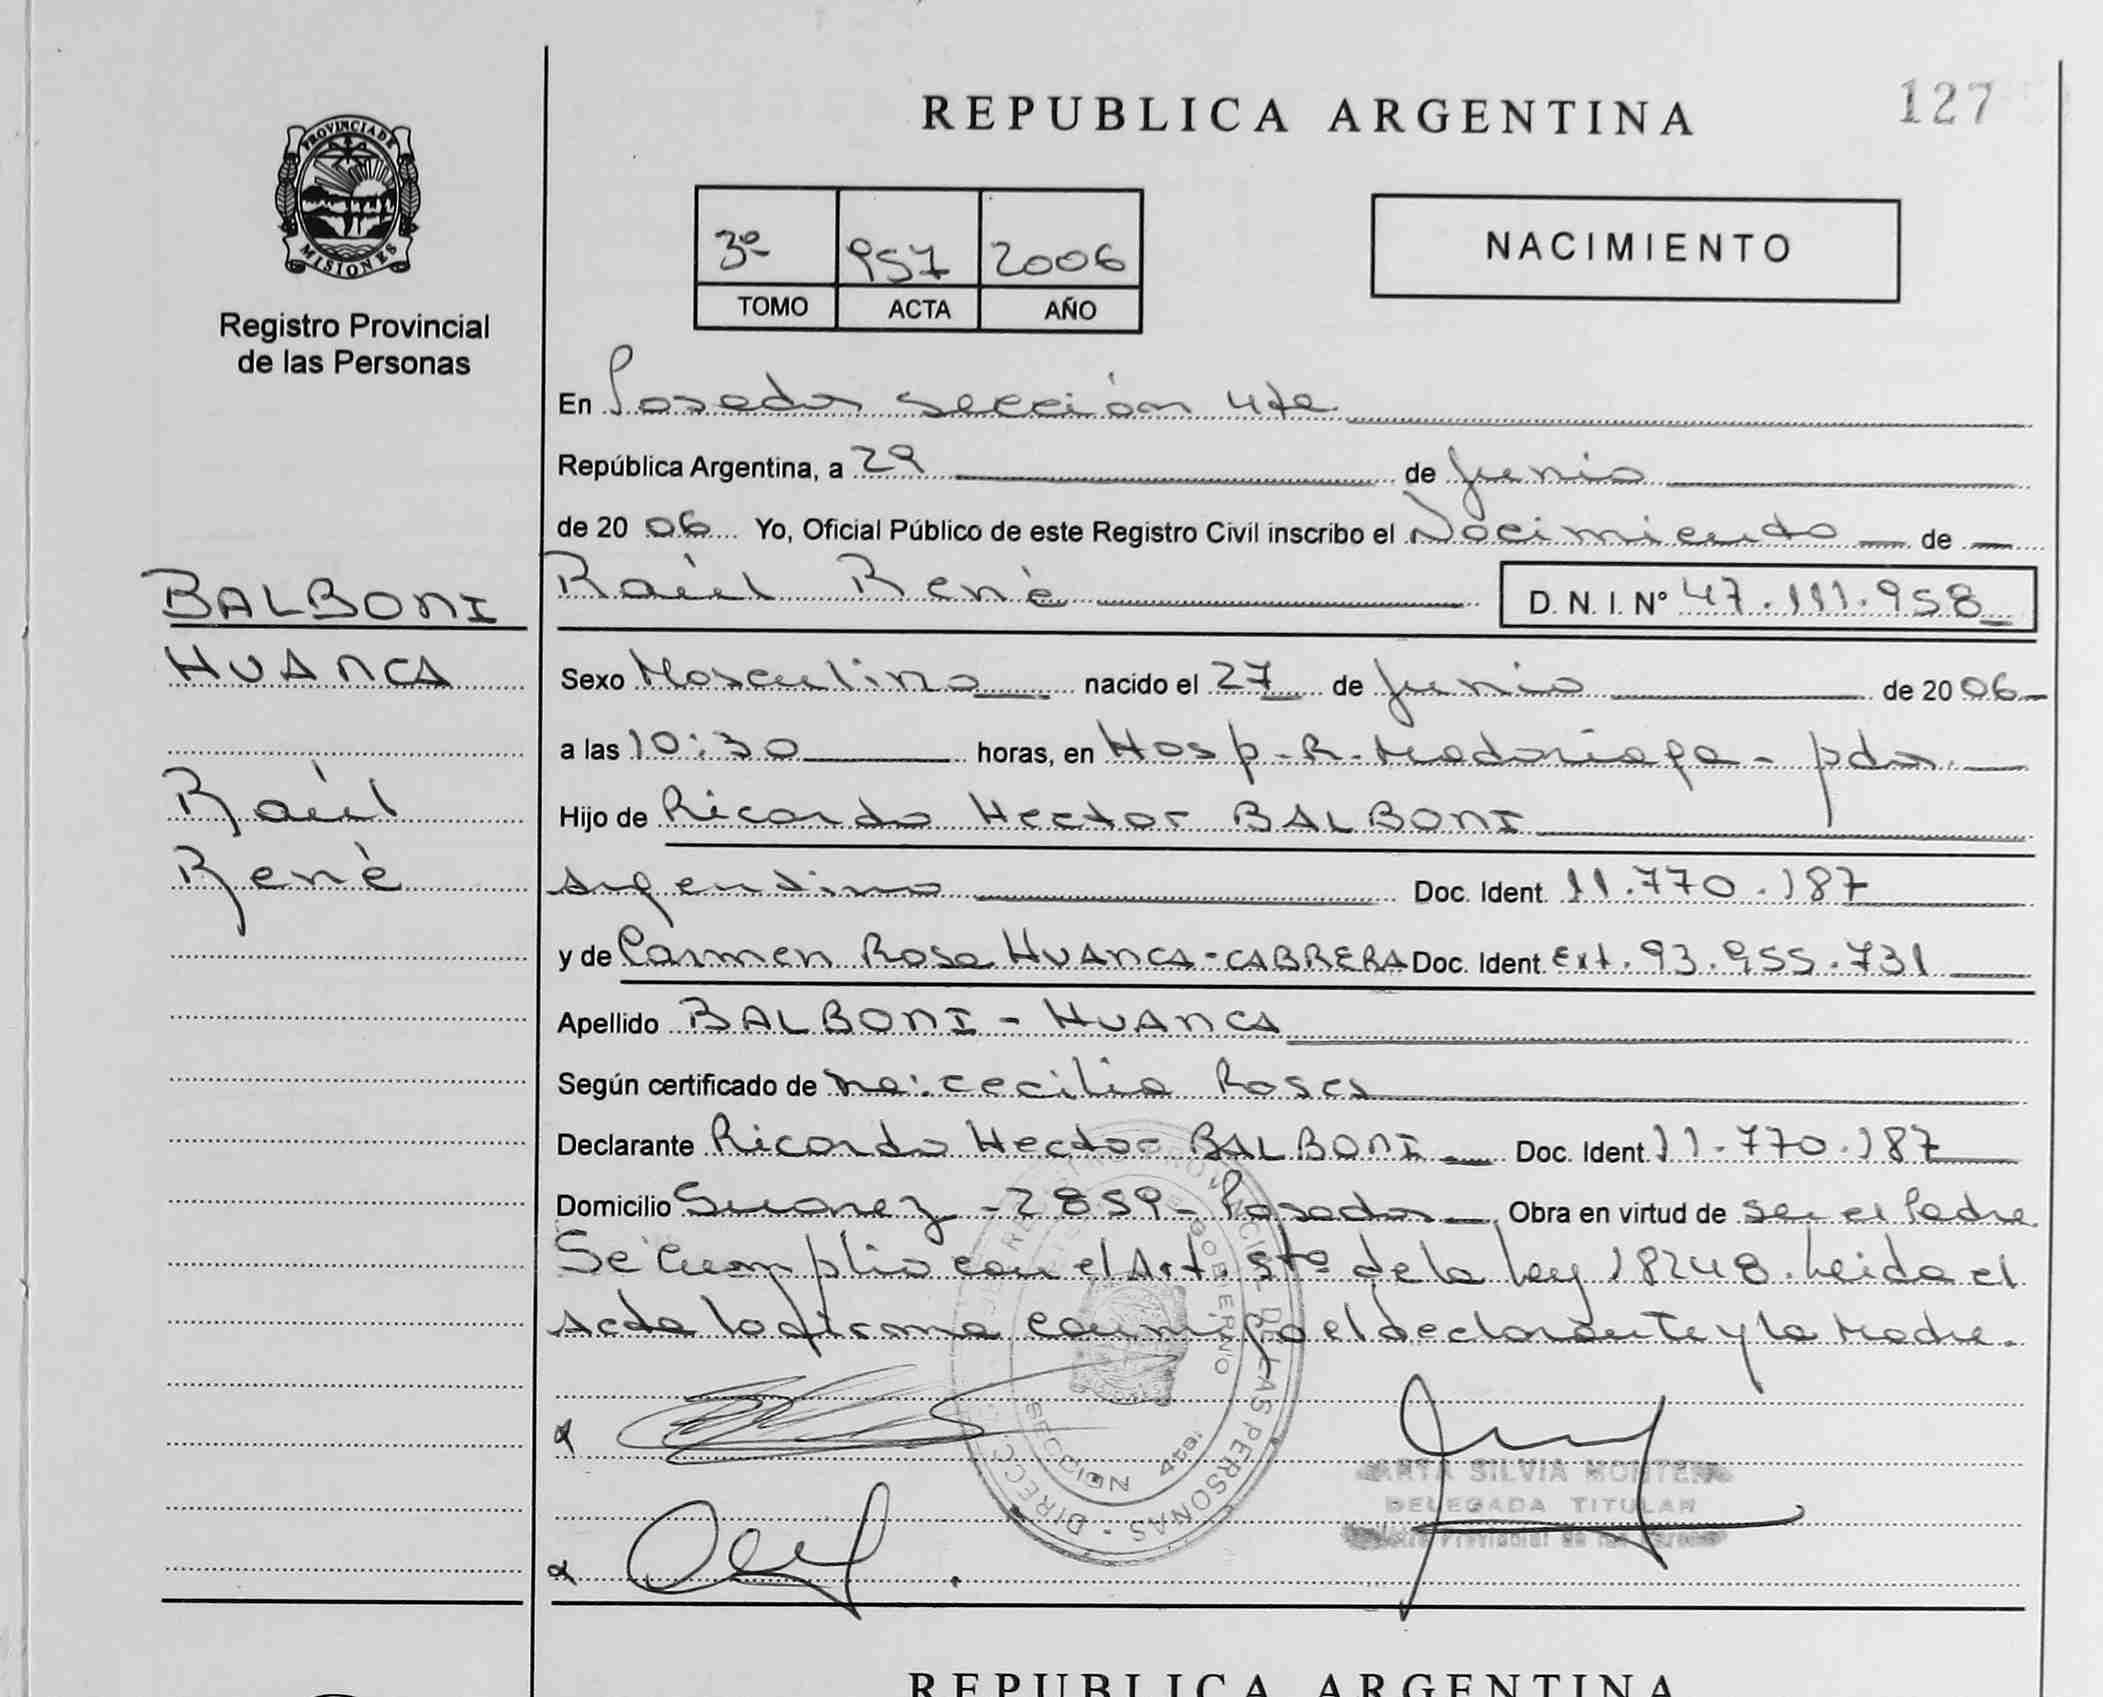 REPUBLICA ARGENTINA
127
PROVINCIA DE
MISIONES
Registro Provincial
de las Personas
3º 957 2006
TOMO ACTA AÑO
NACIMIENTO
En Posadas sección 4ta
República Argentina, a 29 de Junio
de 20 06 Yo, Oficial Público de este Registro Civil inscribo el Nacimiento de
BALBONI
Raúl Renè D. N. I. Nº 47.111.958
HUANCA
Sexo Masculino nacido el 27 de Junio de 20 06
a las 10:30 horas, en Hosp. R. Madariaga - pdas.
Raúl
Hijo de Ricardo Hector BALBONI
Renè
Argentino Doc. Ident. 11.770.187
y de Carmen Rosa HUANCA-CABRERA Doc. Ident. Ext. 93.955.731
Apellido BALBONI - HUANCA
Según certificado de cecilia Rosas
Declarante Ricardo Hector BALBONI Doc. Ident. 11.770.187
Domicilio Suarez - 2859 - Posadas Obra en virtud de ser el Padre
Se cumplio con el Art. 5to de la ley 18248. Leida el
acta la firma conmigo el declarante y la Madre.
SECCION 4ta.
SILVIA
DELEGADA TITULAR
REPUBLICA ARGENTINA